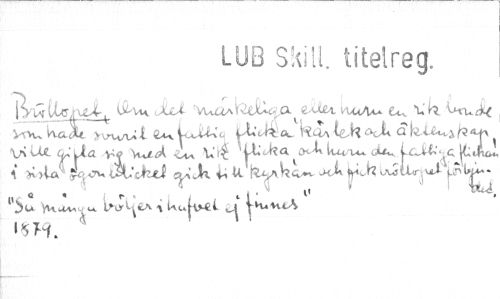 LUB Skill. titelreg.
Bröllopet, Om det märkeliga eller huru en rik bonde,
som hade svurit en fattig flicka kärlek och äktenskap
ville gifta sig med en rik flicka och huru den fattiga flickan
i sista ögonblicket gick till kyrkan och fick bröllopet förbju-
det.
"Så mången böljer i hafvet ej finnes"
1879.